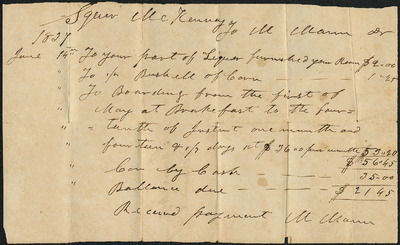 Squir McKenney
To M Mann Dr
1837
June 14th To your part of Liquor furnished your Room $2.00
" To 1/2 Bushell of Corn 1.25
" To Boarding from the first of
" May at Brakefast to the four-
" =teenth of Instut one munth and
" fourteen & 1/2 days at $36.00 per munth 53.20
$56.45
" Con by Cash 35.00
" Ballance due $21.45
Receivd payment M Mann